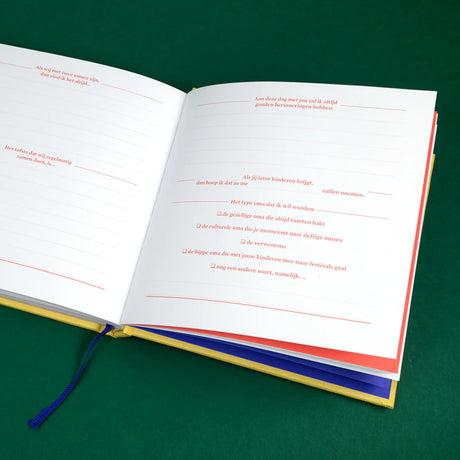 Als wij met twee samen zijn,
dan vind ik het altijd...
Het tofste dat wij regelmatig
samen doen, is...
Aan deze dag met jou zal ik altijd
gouden herinneringen hebben:
Als jij later kinderen krijgt,
dan hoop ik dat ze me zullen noemen.
Het type oma dat ik wil worden:
❏ de gezellige oma die altijd taarten bakt
❏ de culturele oma die je meeneemt naar deftige musea
❏ de verwenoma
❏ de hippe oma die met jouw kinderen mee naar festivals gaat
❏ nog een andere soort, namelijk...